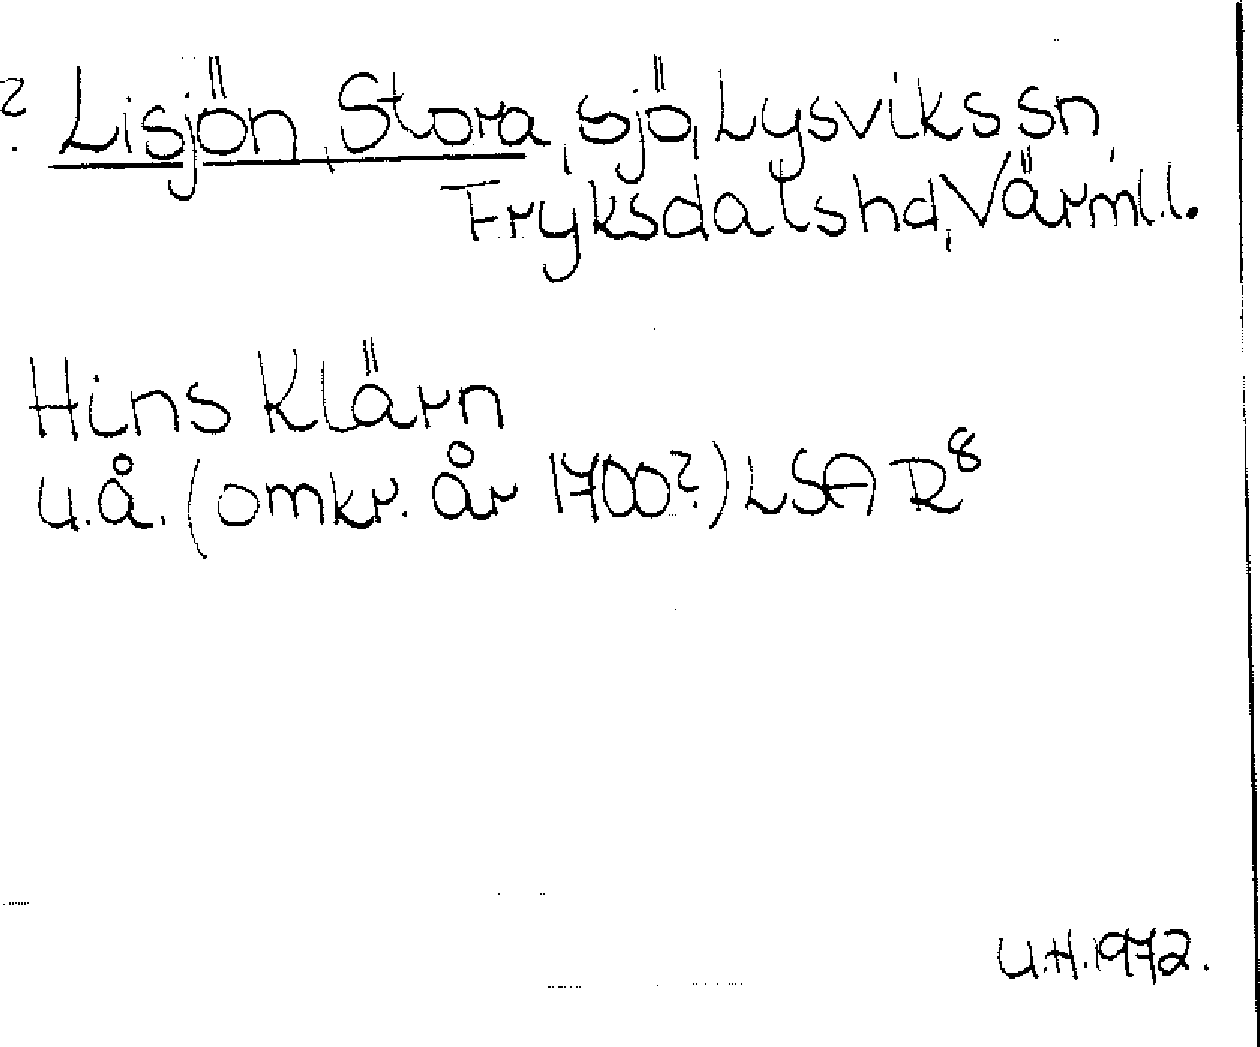 ? Lisjön, Stora, sjö, Lysviks sn,
Fryksdals hd, Värml. l.
Hins Klärn
u.å. (omkr. år 1700?) LSA R8
U.H. 1972.